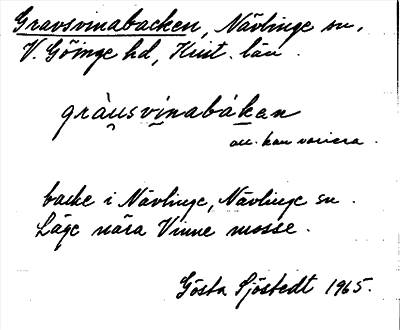 Gravsvinabacken, Nävlinge sn,
V. Göinge hd, Krist. län.
gràu̯svinabákan
acc. kan variera.
backe i Nävlinge, Nävlinge sn.
Läge nära Vinne mosse.
Gösta Sjöstedt 1965.